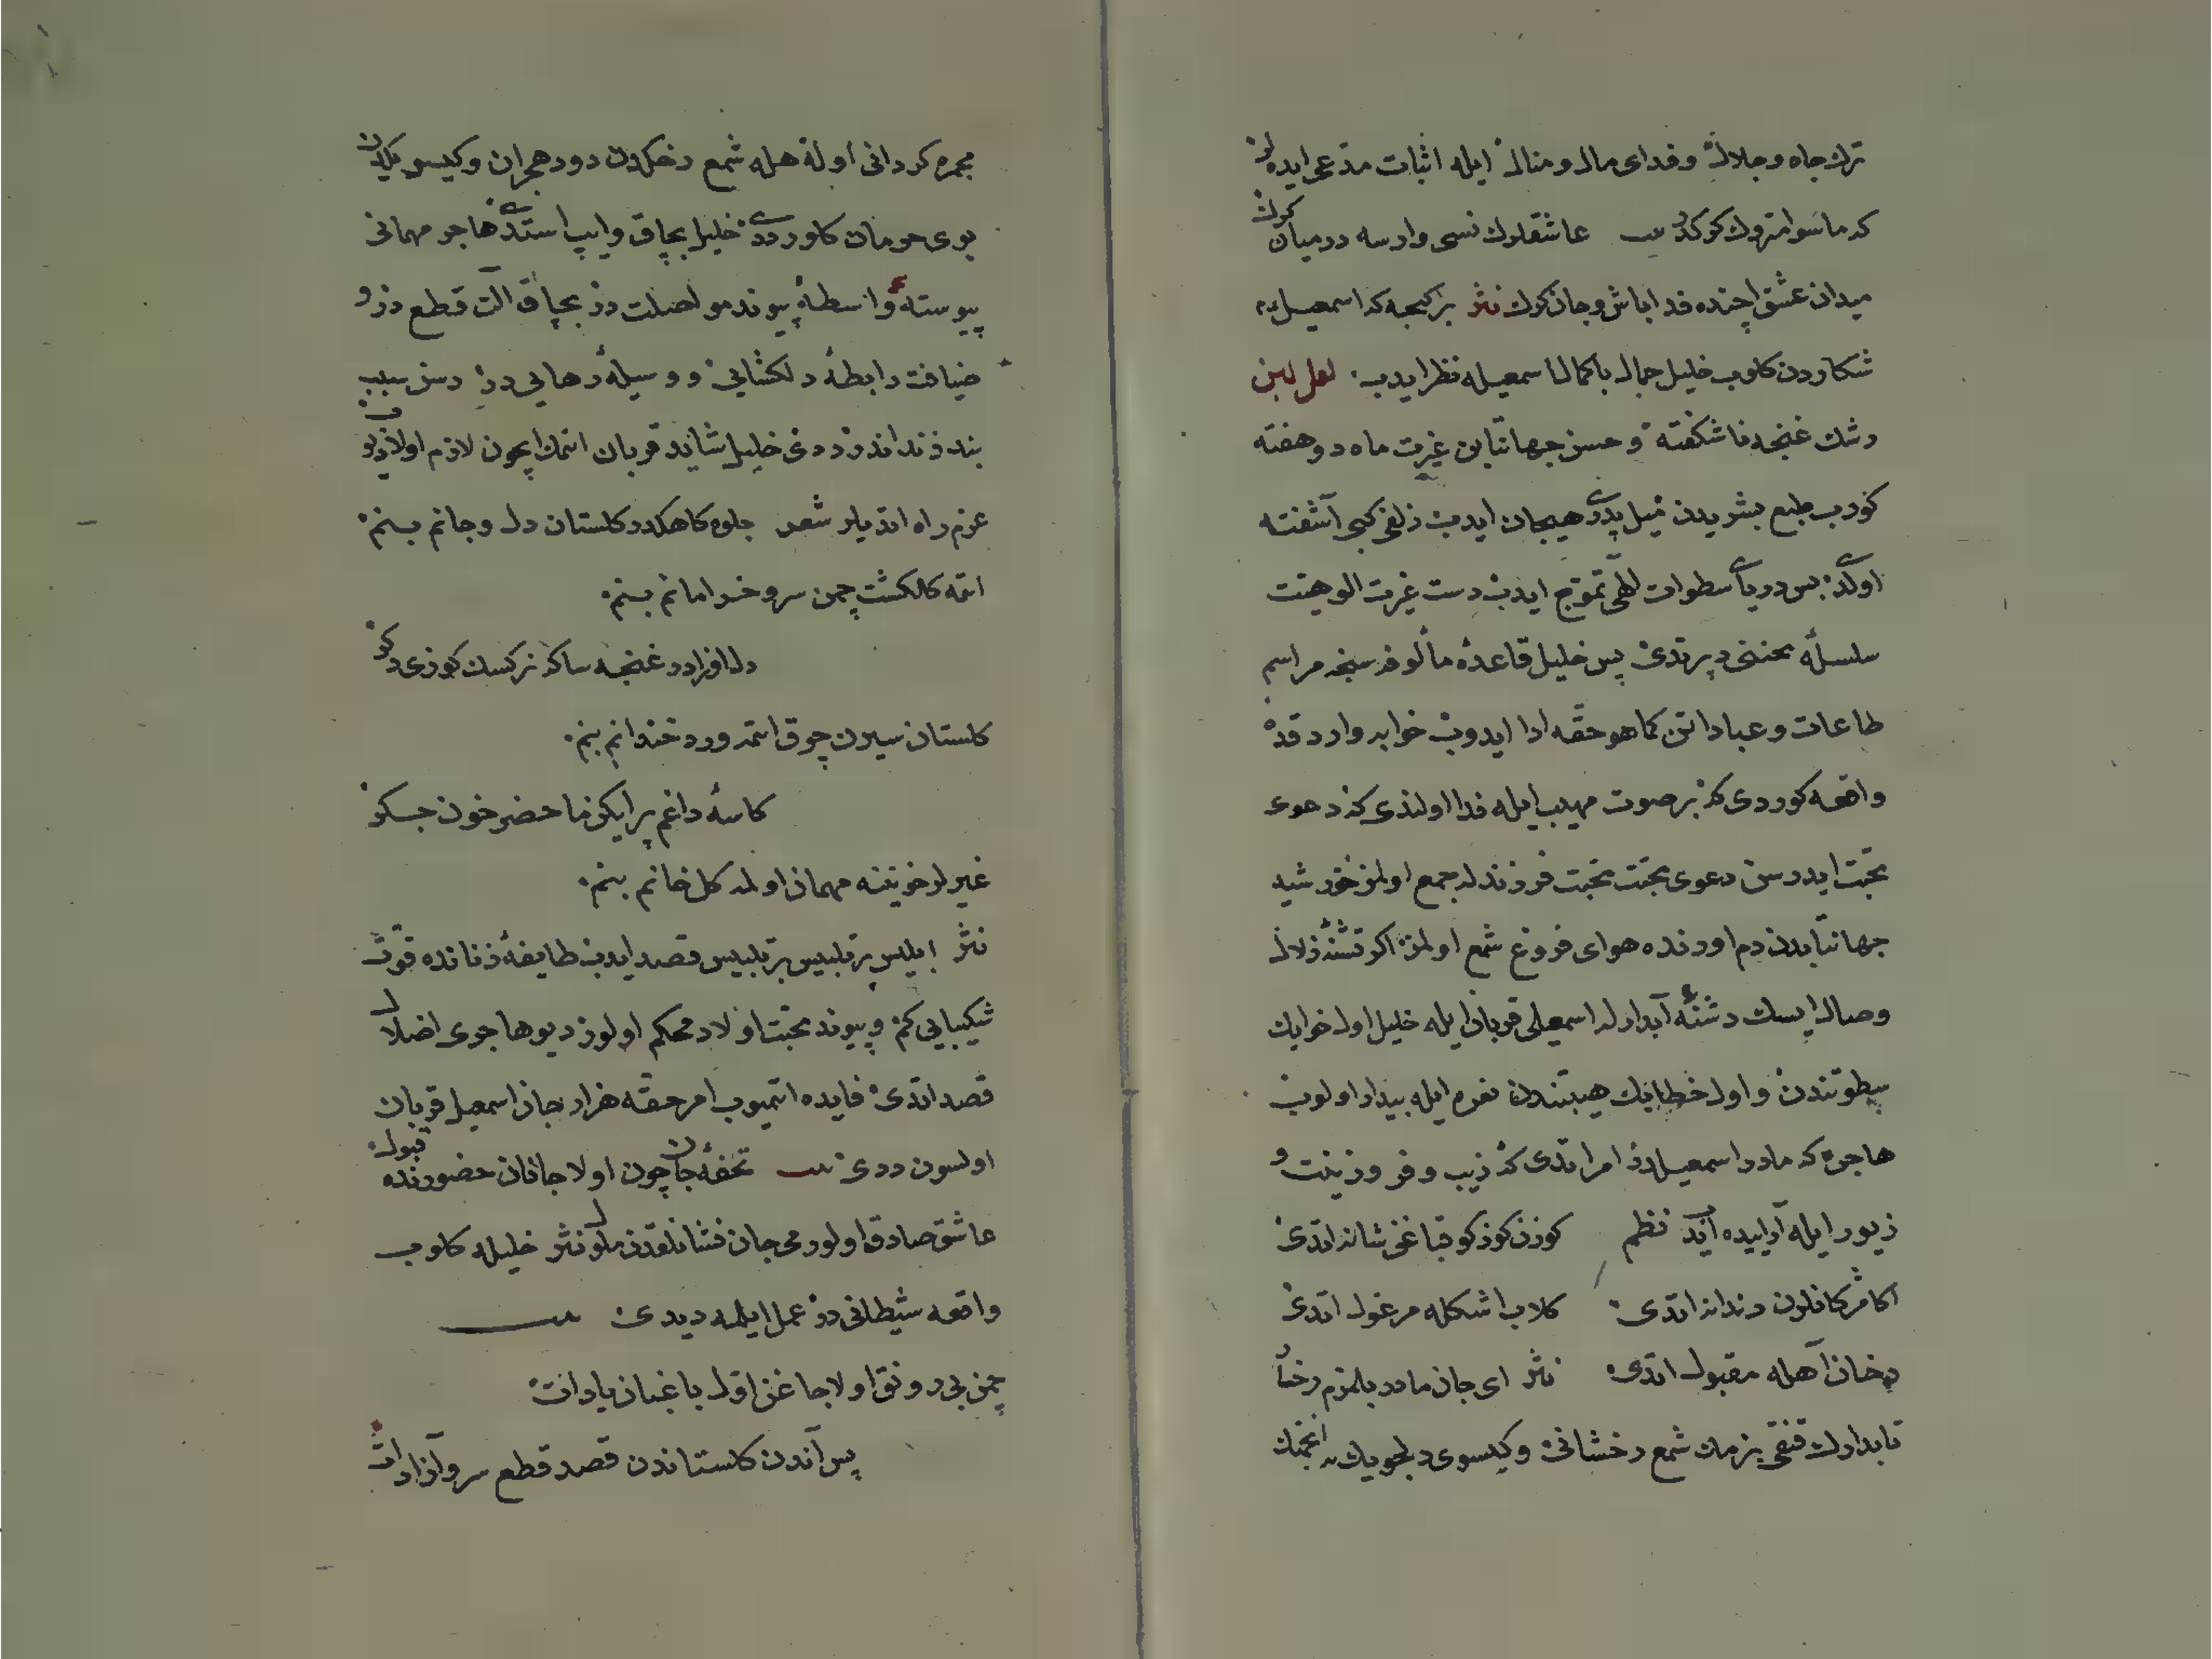 ترك جاه و جلال و فداى مال و منال ايله اثبات مدعى ايده لر
كه ماسوا متروك كركدر بيت عاشقلرك نسى وارسه درميان كرك
ميدان عشق اچنده فدا باش و جان كرك نثر بر كيجه كه اسمعيل
شكاردن كلوب خليل جمال باكمال اسمعيله نظر ايدب لعل لبن
رشك غنچه ناشكفته و حسن جهانتابن غيرت ماه دو هفته
كورب طبع بشريدن ميل پدرى هيجان ايدب زلفى كبى آشفته
اولدى بس درياى سطوات الهى تموج ايدب دست غيرت الوهيت
سلسله محنتى دپرتدى پس خليل قاعدۀ مألوفه سنجه مراسم
طاعات و عباداتن كما هو حقه ادا ايدوب خوابه واردقده
واقعه كوردى كه بر صوت مهيب ايله ندا اولندى كه دعوى
محبت ايدرسن دعوى محبت محبت فرزندله جمع اولمز خورشيد
جهانتابدن دم اورنده هواى فروغ شمع اولمز اكر تشنۀ زلال
وصال ايسك دشنۀ آبدارله اسمعيلى قربان ايله خليل اول خوابك
سطوتندن و اول خطابك هيبتندن نعره ايله بيدار اولوب
هاجره كه مادر اسمعيلدر امر اتدى كه زيب و فر و زينت و
زيور ايله آراييده ايد نظم كوزن كوزكو قباغن شانه اتدى
اكا مژكانلرن دندانه اتدى كلاب اشكله مرغول اتدى
دخان آهله مقبول اتدى نثر اى جان مادر بلمزم رخ
تابدارك قنقى بزمك شمع رخشانى و كيسوى دلجويك نه انجمنك
مجمره كردانى اوله هله شمع رخكدن دود هجران و كيسو يكدن
بوى حرمان كلور ددى خليل بچاق و ايپ استدى هاجر مهمانى
پيوسته واسطۀ پيوند مواصلت در بچاق الت قطع در و
ضيافت رابطۀ دلكشايى و وسيلۀ رهايى در رسن سبب
بند زندانذر ددى خليل شايد قربان اتمك ايچون لازم اولا ديو
عزم راه اتديلر شعر جلوه كاهكدر كلستان دل و جانم بنم
اتمه كلكشت چمن سرو خرامانم بنم
دل افزادر غنچه ساكه نركسك كوزى دكر
كلستان سيرن چوق اتمه ورد خندانم بنم
كاسۀ داغم پر ايكن ماحضر خون جكر
غيرلر خوننه مهمان اولمه كل خانم بنم
نثر ابليس پرتلبيس پرتلبيس قصد ايدب طايفۀ زنانده قوت
شكيبايى كم و پيوند محبت اولاد محكم اولور ديو هاجرى اضلال
قصد اتدى فايده اتميوب امر حقه هزار جان اسمعيل قربان
اولسون ددى بيت تحفۀ جان چون اولا جانان حضورنده قبول
عاشق صادق اولورمى جان فشانلقدن ملول نثر خليله كلوب
واقعه شيطانى در عمل ايلمه ديدى بيت
چمن بى رونق اولاجاغن اول باغبان ياد ات
پس آندن كلستاندن قصد قطع سرو آزاد ات